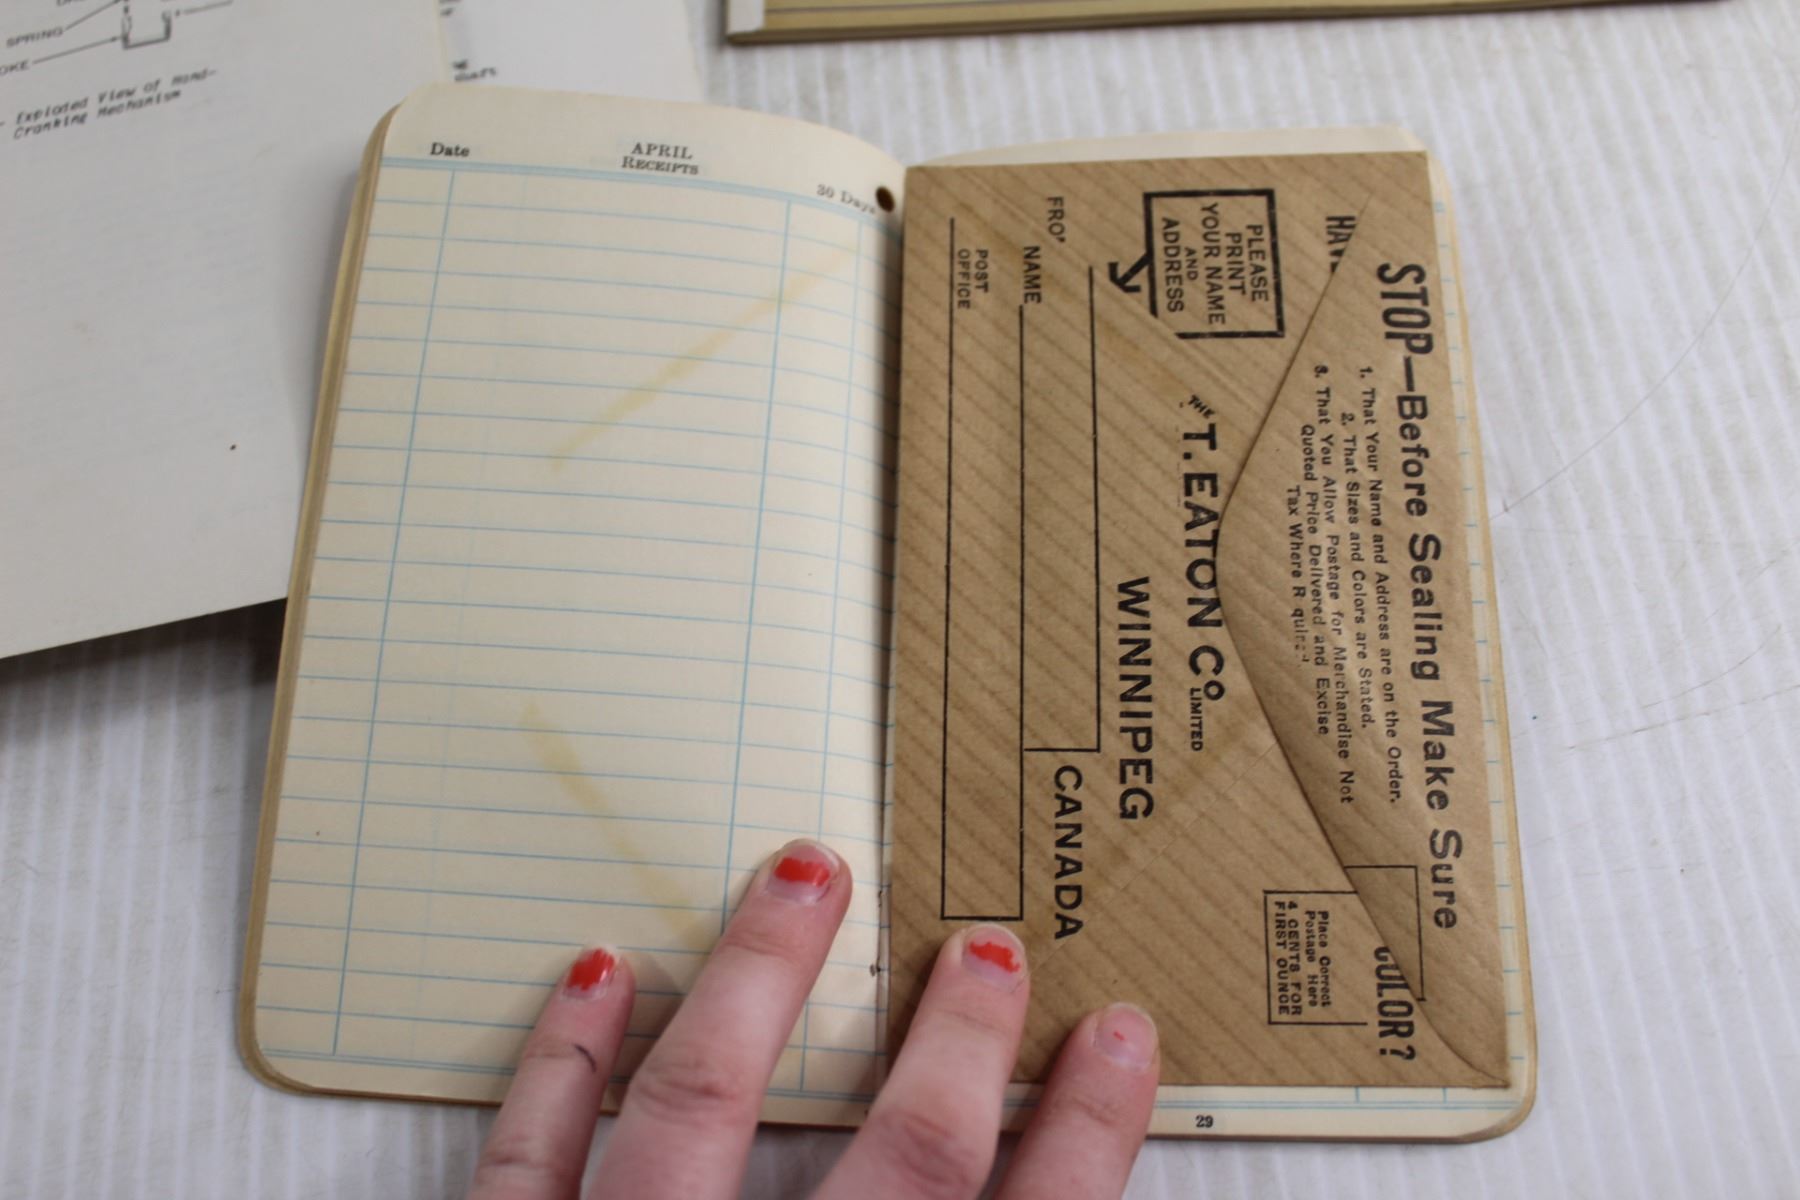 SPRING
Exploded View of Hand-
Cranking Mechanism
Date
APRIL
RECEIPTS
30 Days
STOP—Before Sealing Make Sure
1. That Your Name and Address are on the Order.
2. That Sizes and Colors are Stated.
3. That You Allow Postage for Merchandise Not
Quoted Price Delivered and Excise
Tax Where R quired
HAV
COLOR?
PLEASE
PRINT
YOUR NAME
AND
ADDRESS
THE T. EATON Co LIMITED
WINNIPEG
CANADA
FRO
NAME
POST
OFFICE
Place Correct
Postage Here
4 CENTS FOR
FIRST OUNCE
29